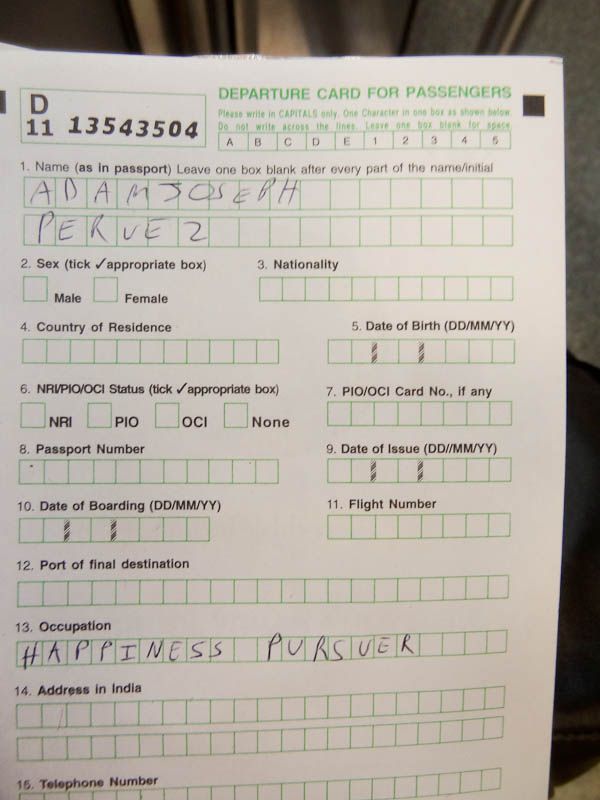 D
11 13543504
DEPARTURE CARD FOR PASSENGERS
Please write in CAPITALS only. One Character in one box as shown below.
Do not write across the lines. Leave one box blank for space
A B C D E 1 2 3 4 5
1. Name (as in passport) Leave one box blank after every part of the name/initial
ADAM JOSEPH
PERVEZ
2. Sex (tick ✓appropriate box)
3. Nationality
Male Female
4. Country of Residence
5. Date of Birth (DD/MM/YY)
6. NRI/PIO/OCI Status (tick ✓appropriate box)
7. PIO/OCI Card No., if any
NRI PIO OCI None
8. Passport Number
9. Date of Issue (DD//MM/YY)
10. Date of Boarding (DD/MM/YY)
11. Flight Number
12. Port of final destination
13. Occupation
HAPPINESS PURSUER
14. Address in India
15. Telephone Number